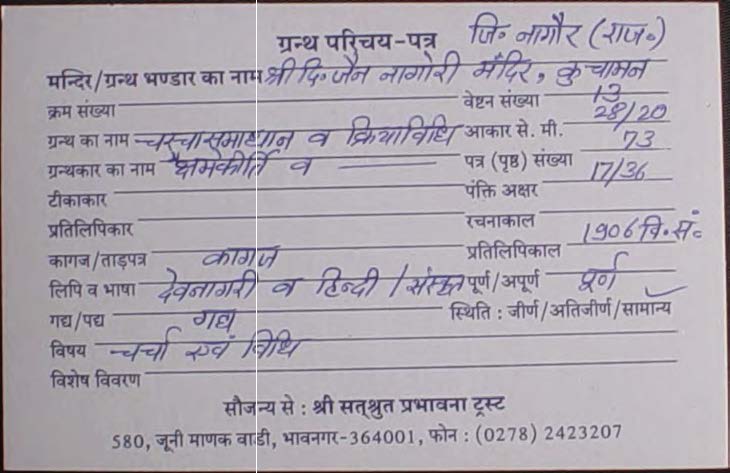 ग्रन्थ परिचय-पत्र जि॰ नागौर (राज॰)
मन्दिर/ग्रन्थ भण्डार का नाम श्री दि॰ जैन नागोरी मंदिर, कुचामन
क्रम संख्या वेष्टन संख्या 13
ग्रन्थ का नाम चरचासमाधान व क्रियाविधि आकार से. मी. 28/20
ग्रन्थकार का नाम क्षेमकीर्ति व — पत्र (पृष्ठ) संख्या 73
टीकाकार पंक्ति अक्षर 17/36
प्रतिलिपिकार रचनाकाल
कागज/ताड़पत्र कागज प्रतिलिपिकाल 1906 वि॰ सं॰
लिपि व भाषा देवनागरी व हिन्दी / संस्कृत पूर्ण/अपूर्ण पूर्ण
गद्य/पद्य गद्य स्थिति : जीर्ण/अतिजीर्ण/सामान्य ✓
विषय चर्चा एवं विधि
विशेष विवरण
सौजन्य से : श्री सत्श्रुत प्रभावना ट्रस्ट
580, जूनी माणक वाडी, भावनगर-364001, फोन : (0278) 2423207